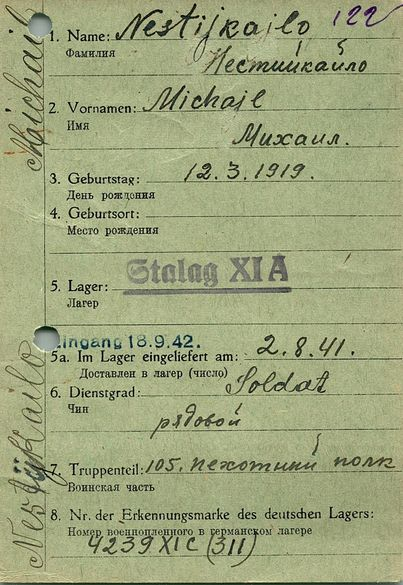 122
1. Name: Nestijkajlo
Фамилия
Нестийкайло
2. Vornamen: Michajl
Имя
Михаил.
3. Geburtstag: 12.3.1919.
День рождения
4. Geburtsort:
Место рождения
Stalag XI A
5. Lager:
Лагер
Eingang 18.9.42.
5a. Im Lager eingeliefert am: 2.8.41.
Доставлен в лагер (число)
6. Dienstgrad: Soldat
Чин
рядовой
7. Truppenteil: 105. пехотный полк
Воинская часть
8. Nr. der Erkennungsmarke des deutschen Lagers:
Номер военнопленного в германском лагере
4239 XI C (311)
Nestijkajlo Michail